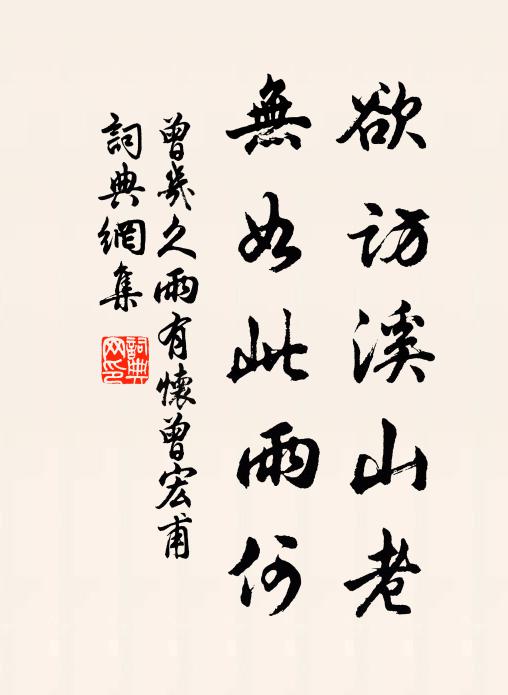 欲訪溪山老
無如此雨何
曾幾久雨有懷曾宏甫
詞典網集
詞典网印